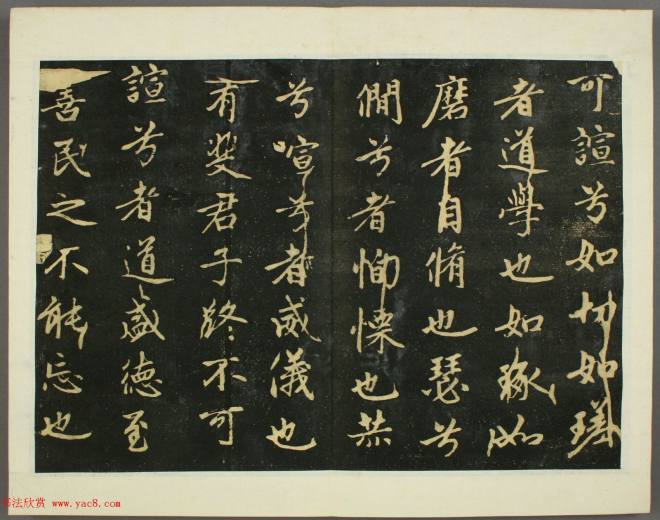 可諠兮如切如磋
者道學也如琢如
磨者自脩也瑟兮
僩兮者恂慄也赫
兮喧兮者威儀也
有斐君子終不可
諠兮者道盛德至
善民之不能忘也
书法欣赏 www.yac8.com